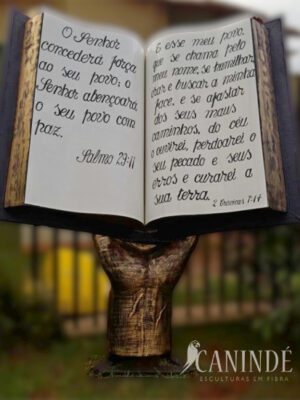 O Senhor
concederá força
ao seu povo; o
Senhor abençoará
o seu povo com
paz.
Salmo 29:11
E esse meu povo,
que se chama pelo
meu nome, se humilhar,
orar e buscar a minha
face, e se afastar
dos seus maus
caminhos, do céu
o ouvirei, perdoarei o
seu pecado e seus
erros e curarei a
sua terra.
2 Crônicas 7:14
CANINDÉ
ESCULTURAS EM FIBRA